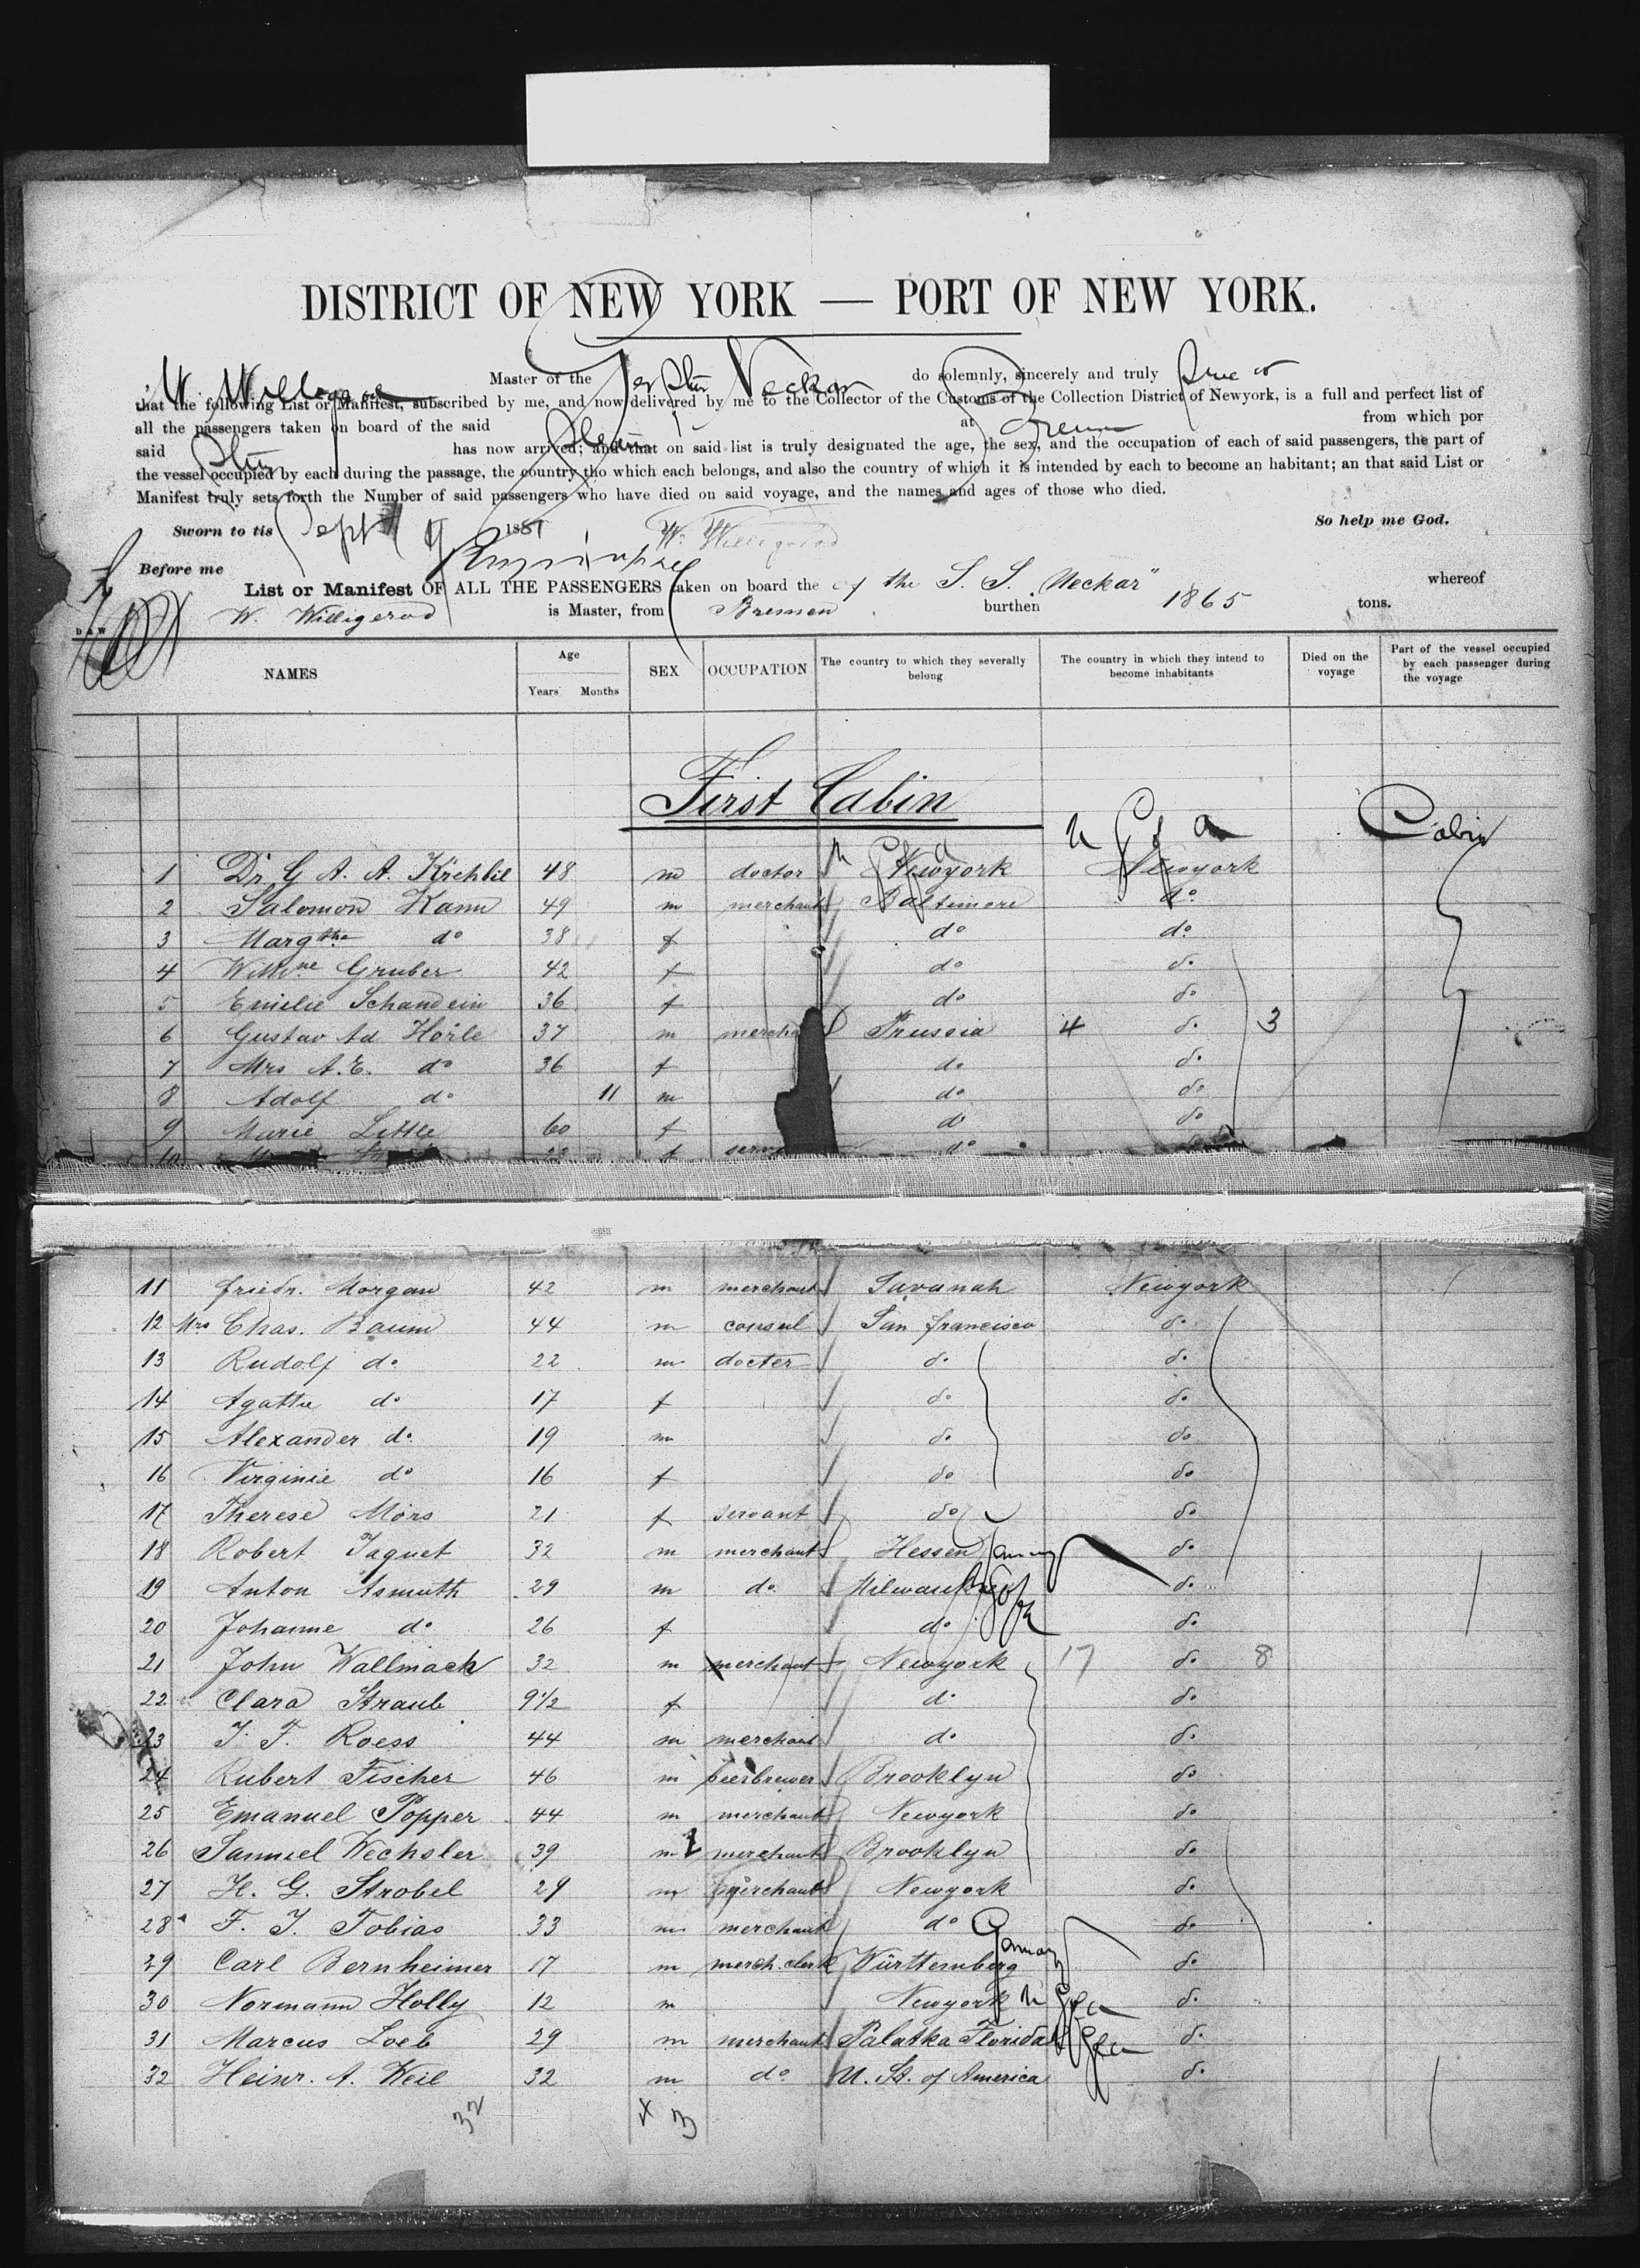 DISTRICT OF NEW YORK — PORT OF NEW YORK.
W. Willigerod Master of the Ger Str Neckar do solemnly, sincerely and truly
that the following List or Manifest, subscribed by me, and now delivered by me to the Collector of the Customs of the Collection District of Newyork, is a full and perfect list of
all the passengers taken on board of the said at Bremen from which por
said has now arrived; and that on said list is truly designated the age, the sex, and the occupation of each of said passengers, the part of
the vessel occupied by each during the passage, the country tho which each belongs, and also the country of which it is intended by each to become an habitant; an that said List or
Manifest truly sets forth the Number of said passengers who have died on said voyage, and the names and ages of those who died.
Sworn to tis Sept 1881 W. Willigerod So help me God.
Before me
List or Manifest OF ALL THE PASSENGERS taken on board the of the S. S. "Neckar" whereof
W. Willigerod is Master, from Bremen burthen 1865 tons.
NAMES Age Years Months SEX OCCUPATION The country to which they severally belong The country in which they intend to become inhabitants Died on the voyage Part of the vessel occupied by each passenger during the voyage
First Cabin
U S of A Cabin
1 Dr. G. A. A. Kirchbie 48 m doctor Newyork Newyork
2 Salomon Kann 49 m merchant Baltimore do
3 Margthe do 38 f do do
4 Wilhne Gruber 42 f do do
5 Emilie Schandein 36 f do do
6 Gustav Ad Hörle 37 m mercha Prussia 4 do 3
7 Mrs A. E. do 36 f do do
8 Adolf do 11 m do do
9 Marie Little 60 f do do
10 f serv do
11 Friedr. Morgan 42 m merchant Savanah Newyork
12 Mrs Chas. Baum 44 m consul San Francisco do
13 Rudolf do 22 m docter do do
14 Agathe do 17 f do do
15 Alexander do 19 m do do
16 Virginie do 16 f do do
17 Therese Mörs 21 f servant do do
18 Robert Jaquet 32 m merchant Hessen Germany do
19 Anton Asmuth 29 m do Milwaukee do
20 Johanne do 26 f do do
21 John Wallmach 32 m merchant Newyork 17 do 8
22 Clara Straub 9 1/2 f do do
23 J. F. Roess 44 m merchant do do
24 Rubert Fischer 46 m beerbrewer Brooklyn do
25 Emanuel Popper 44 m merchant Newyork do
26 Samuel Wechsler 39 m merchant Brooklyn do
27 H. G. Strobel 29 m merchant Newyork do
28 F. J. Tobias 33 m merchant do do
29 Carl Bernheimer 17 m merch. clerk Württemberg Germany do
30 Normann Holly 12 m Newyork U S of A do
31 Marcus Loeb 29 m merchant Palatka Florida do
32 Heinr. A. Weil 32 m do U. St. of America do
32 x 3